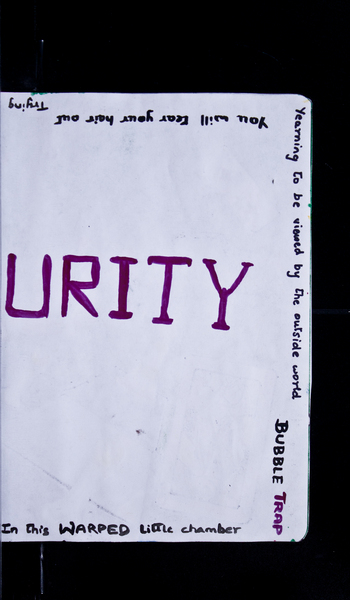 You will tear your hair out
Trying
Yearning to be viewed by the outside world
URITY
BUBBLE TRAP
In this WARPED little chamber